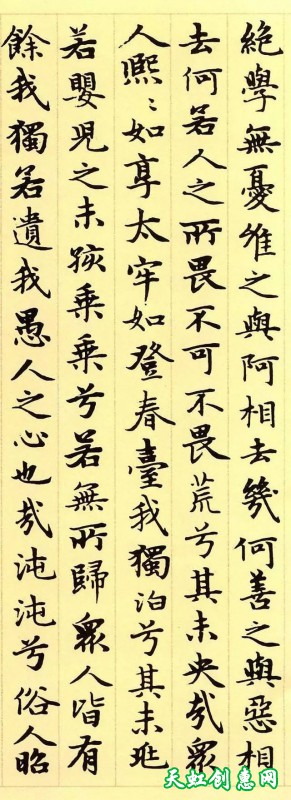 絶學無憂維之與阿相去幾何善之與惡相
去何若人之所畏不可不畏荒兮其未央哉眾
人熙〻如享太牢如登春臺我獨泊兮其未兆
若嬰兒之未孩乘乘兮若無所歸眾人皆有
餘我獨若遺我愚人之心也哉沌沌兮俗人昭
天虹创惠网